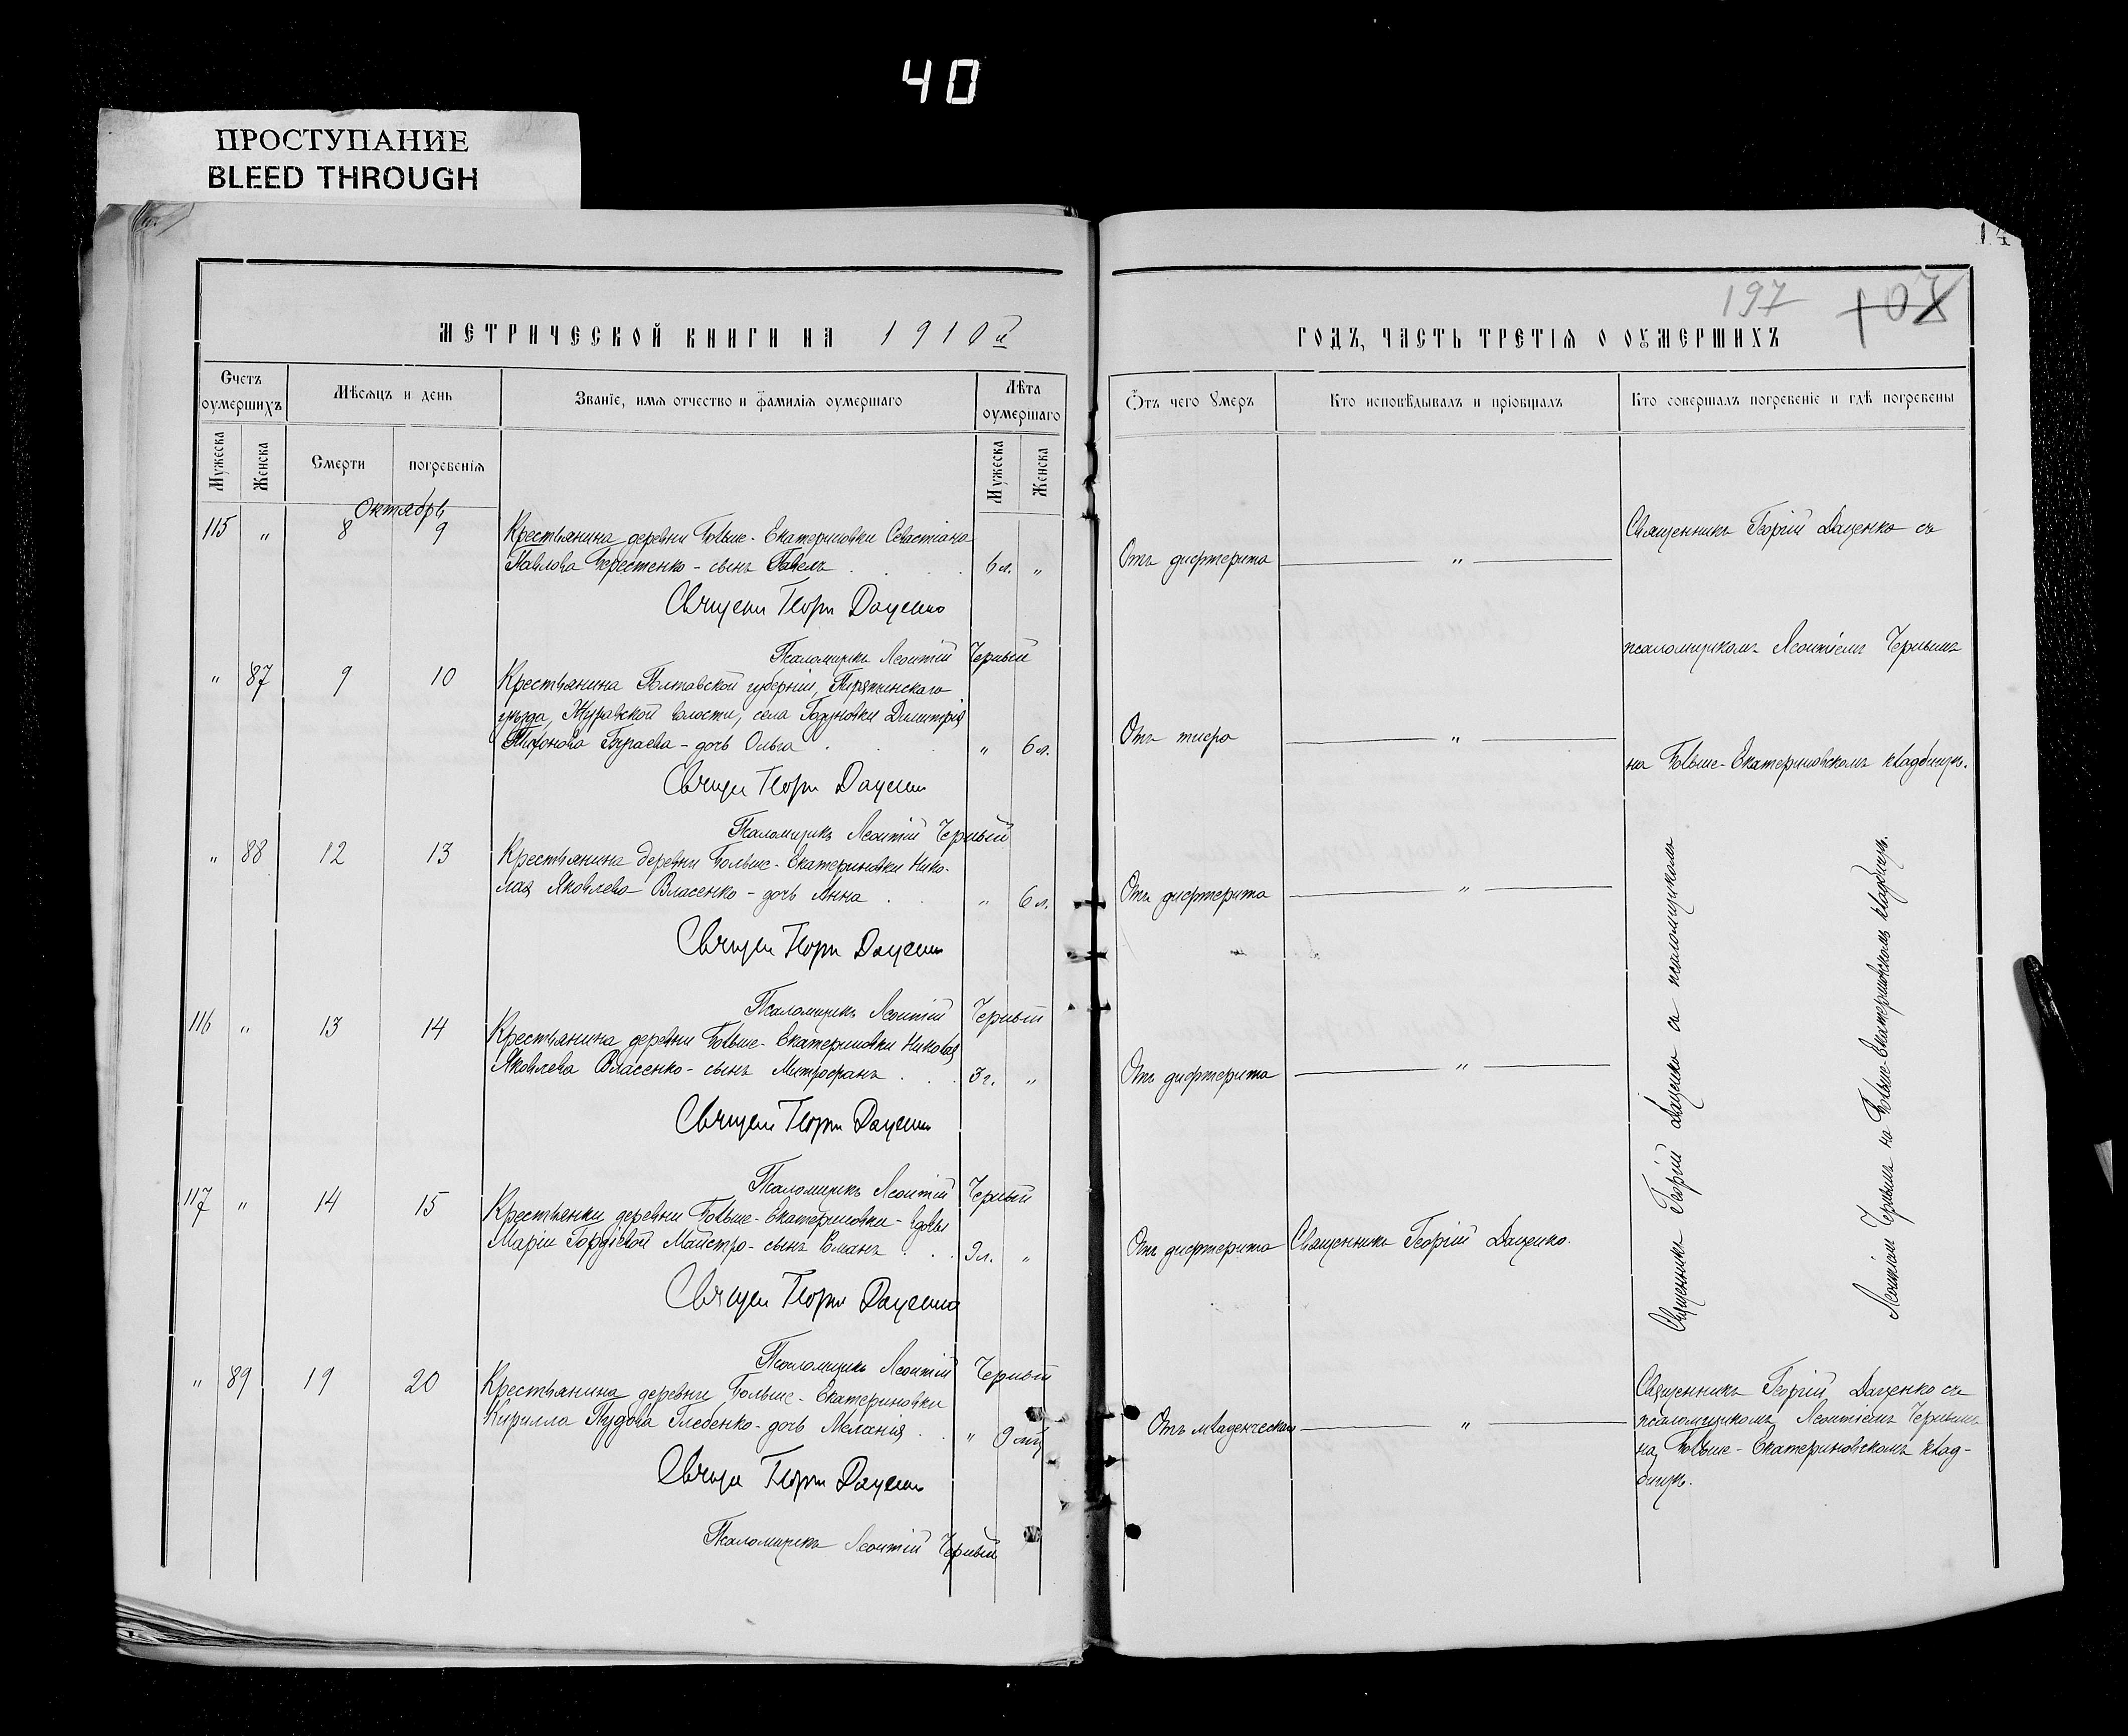 40
ПРОСТУПАНИЕ
BLEED THROUGH
14
197
107
МЕТРИЧЕСКОЙ КНИГИ НА 1910й
ГОДЪ, ЧАСТЬ ТРЕТІЯ О ОУМЕРШИХЪ
Счетъ оумершихъ
Мѣсяцъ и день
Званіе, имя отчество и фамилія оумершаго
Лѣта оумершаго
Отъ чего умеръ
Кто исповѣдывалъ и пріобщалъ
Кто совершалъ погребеніе и гдѣ погребены
Мужеска
Женска
Смерти
погребенія
Мужеска
Женска
Октябрь
115 " 8 9 Крестьянина деревни Больше-Екатериновки Севастіана
Павлова Берестенко - сынъ Павелъ 6 л. " Отъ дифтерита "
Священникъ Георгій Даценко съ
Священ Георгій Даценко
Псаломщикъ Леонтій Черный
псаломщикомъ Леонтіемъ Чернымъ
" 87 9 10 Крестьянина Полтавской губерніи, Пирятинскаго
уѣзда, Журавской волости, села Димитрія
дочь Ольга " 6 л. Отъ "
на Больше-Екатериновскомъ кладбищѣ.
Священ Георгій Даценко
Псаломщикъ Леонтій Черный
" 88 12 13 Крестьянина деревни Больше-Екатериновки Нико-
лая Яковлева Власенко - дочь Анна " 6 л. Отъ дифтерита "
Священ Георгій Даценко
Псаломщикъ Леонтій Черный
116 " 13 14 Крестьянина деревни Больше-Екатериновки Николая
Яковлева Власенко - сынъ Митрофанъ 3 г. " Отъ дифтерита "
Священ Георгій Даценко
Псаломщикъ Леонтій Черный
117 " 14 15 Крестьянки деревни Больше-Екатериновки - вдовы
Маріи Гордіевой Майстро - сынъ 9 л. " Отъ дифтерита Священникъ Георгій Даценко.
Священ Георгій Даценко
Псаломщикъ Леонтій Черный
Священникъ Георгій Даценко съ псаломщикомъ
Леонтіемъ Чернымъ на Больше-Екатериновскомъ кладбищѣ.
" 89 19 20 Крестьянина деревни Больше-Екатериновки
Кирилла Глебенко - дочь Меланія " 9 мѣс Отъ младенческой "
Священникъ Георгій Даценко съ
псаломщикомъ Леонтіемъ Чернымъ
на Больше-Екатериновскомъ клад-
бищѣ.
Священ Георгій Даценко
Псаломщикъ Леонтій Черный